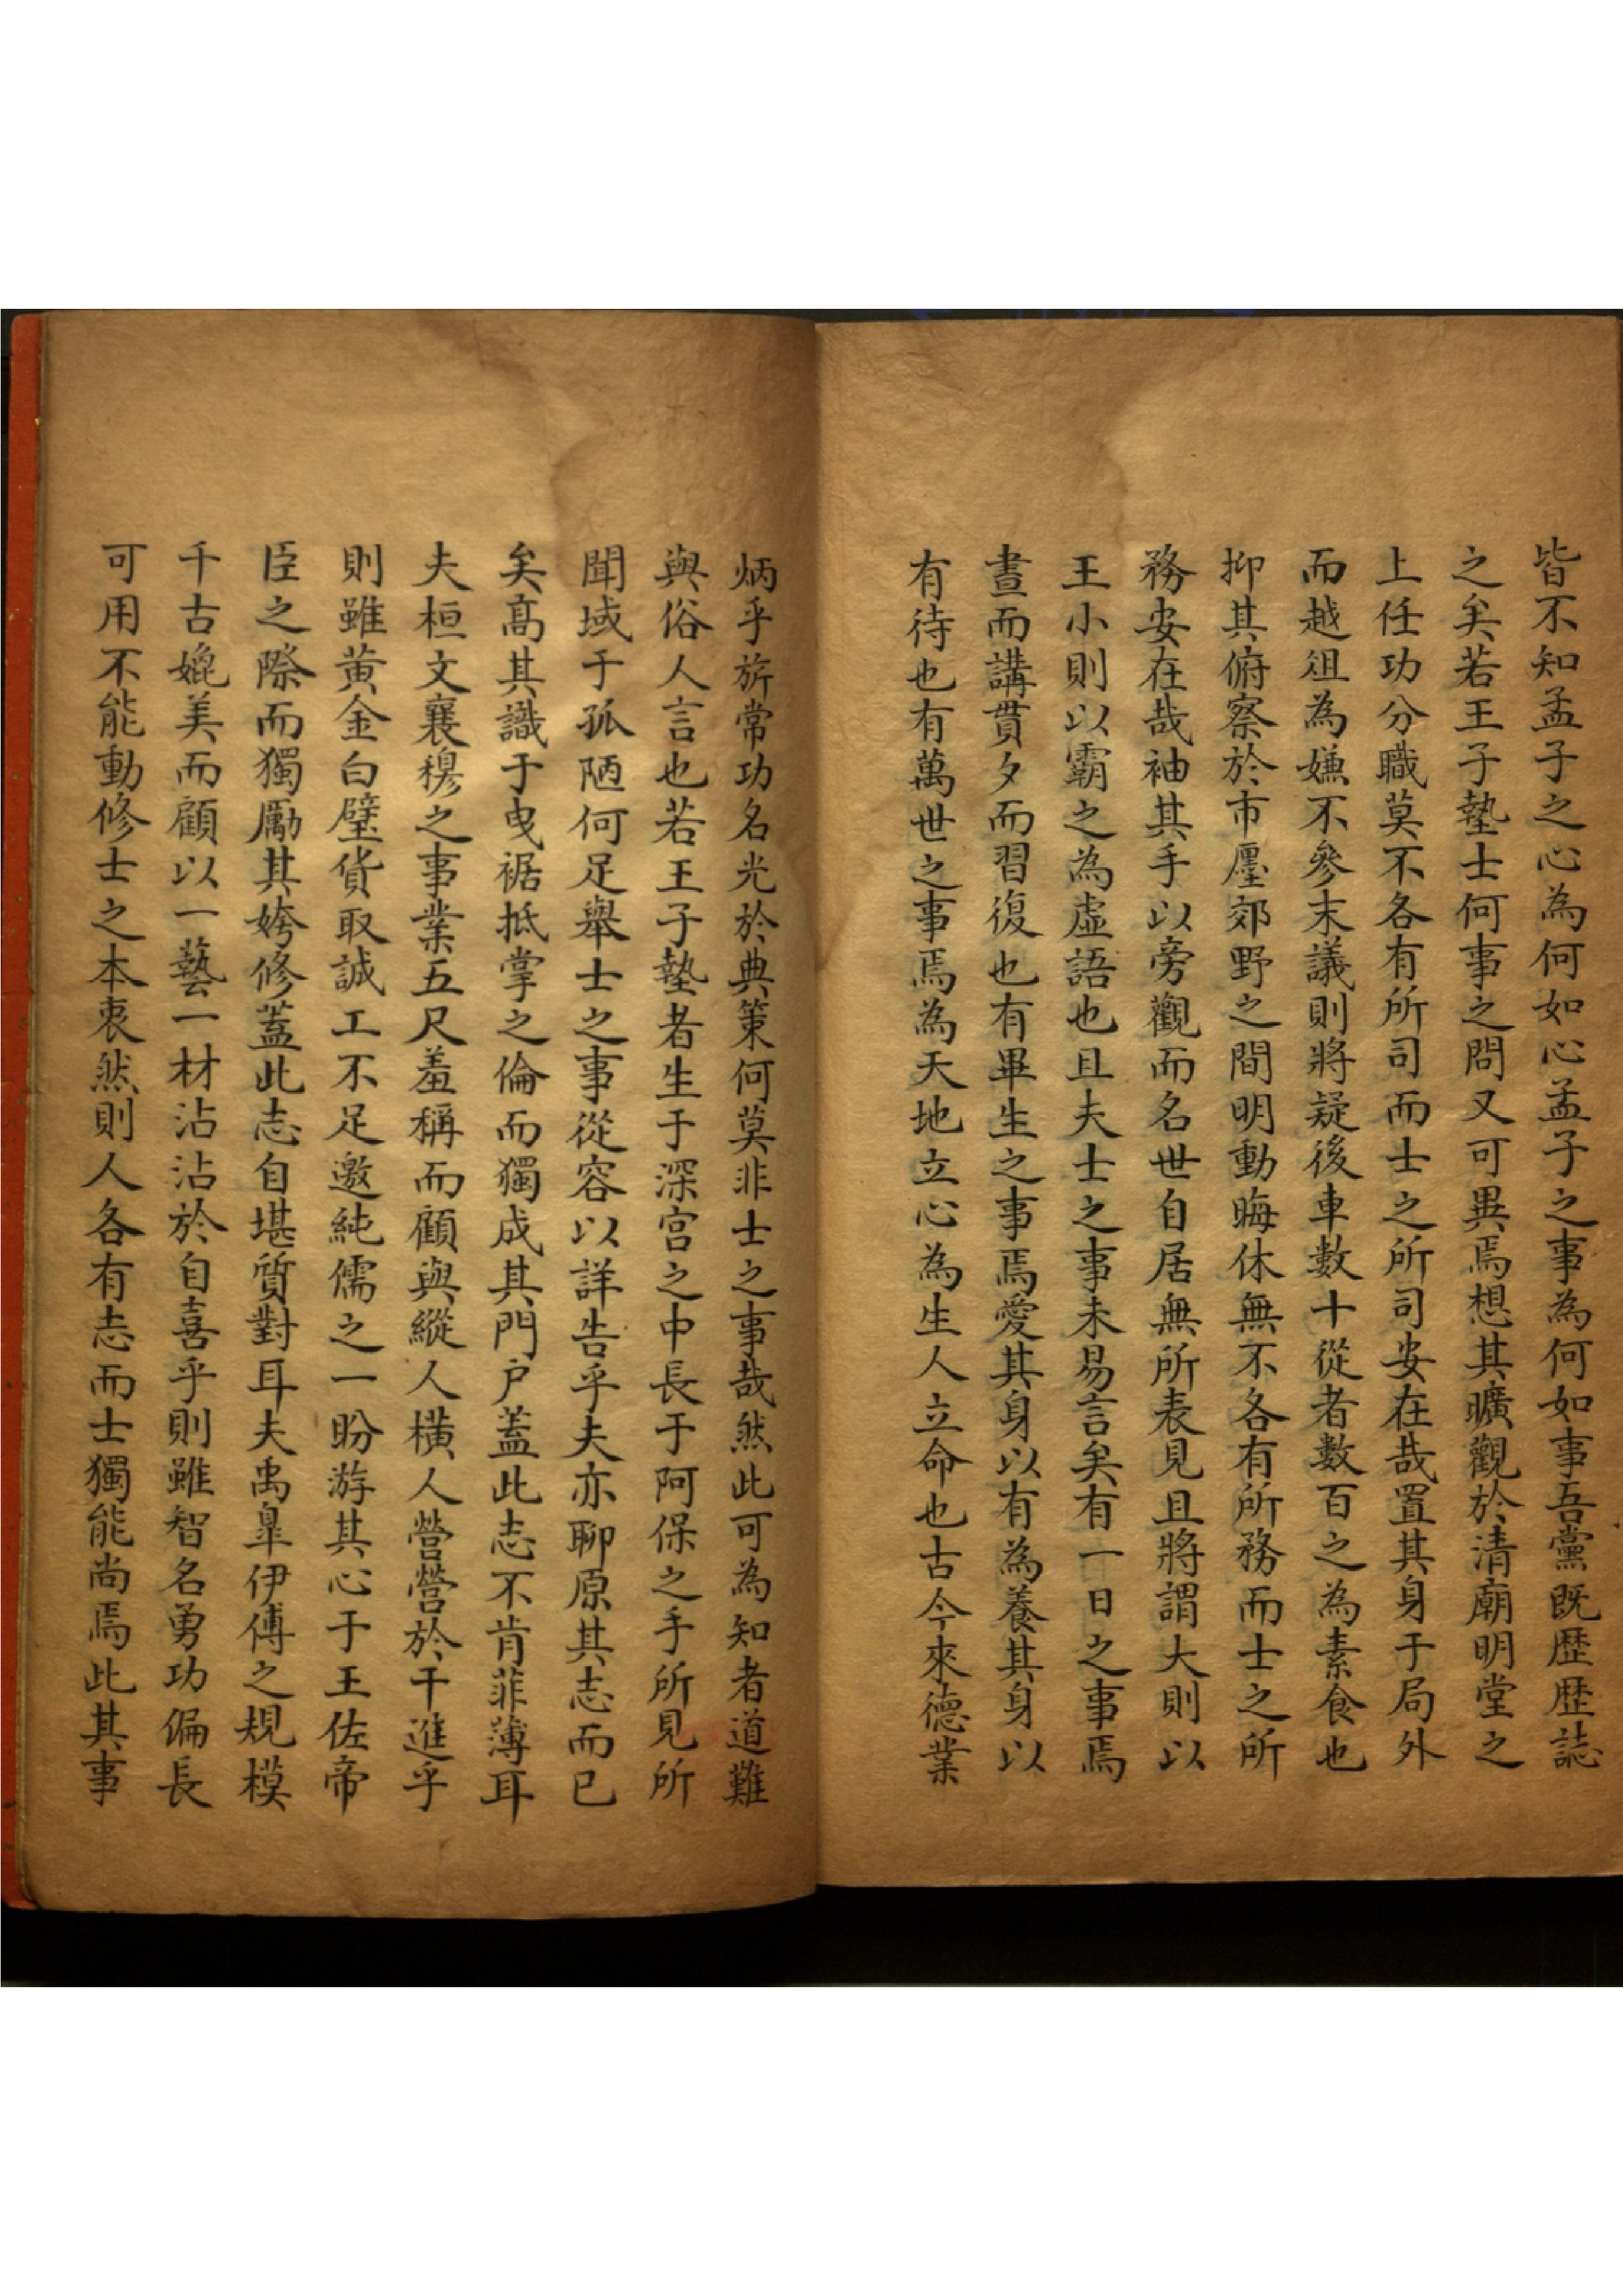 皆不知孟子之心為何如心孟子之事為何如事吾黨既歷歷誌
之矣若王子墊士何事之問又可異焉想其曠觀於清廟明堂之
上任功分職莫不各有所司而士之所司安在哉置其身于局外
而越俎為嫌不參末議則將疑後車數十從者數百之為素食也
抑其俯察於市廛郊野之間明動晦休無不各有所務而士之所
務安在哉袖其手以旁觀而名世自居無所表見且將謂大則以
王小則以霸之為虛語也且夫士之事未易言矣有一日之事焉
晝而講貫夕而習復也有畢生之事焉愛其身以有為養其身以
有待也有萬世之事焉為天地立心為生人立命也古今來德業
炳乎旂常功名光於典策何莫非士之事哉然此可為知者道難
與俗人言也若王子墊者生于深宮之中長于阿保之手所見所
聞域于孤陋何足舉士之事從容以詳告乎夫亦聊原其志而已
矣高其識于曳裾抵掌之倫而獨成其門戶蓋此志不肯菲薄耳
夫桓文襄穆之事業五尺羞稱而顧與縱人橫人營營於干進乎
則雖黃金白璧貨取誠工不足邀純儒之一盼游其心于王佐帝
臣之際而獨勵其姱修蓋此志自堪質對耳夫禹皐伊傅之規模
千古媲美而顧以一藝一材沾沾於自喜乎則雖智名勇功偏長
可用不能動修士之本衷然則人各有志而士獨能尚焉此其事